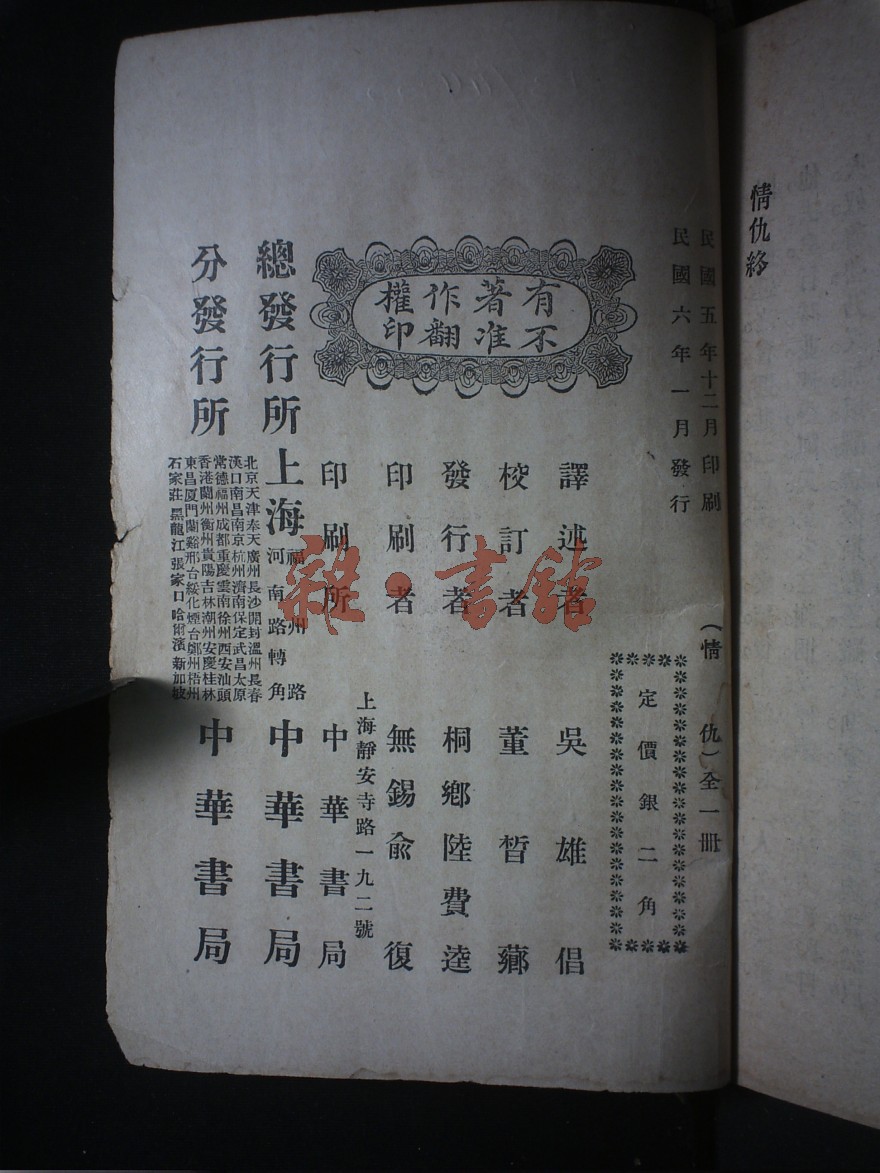 情仇終
民國五年十二月印刷
民國六年一月發行
(情仇)全一冊
定價銀二角
有著作權
不准翻印
譯述者 吳雄倡
校訂者 董晳薌
發行者 桐鄉陸費逵
印刷者 無錫俞復
上海靜安寺路一九二號
印刷所 中華書局
總發行所 上海 福州路河南路轉角 中華書局
分發行所
北京天津奉天廣州長沙開封溫州長春
漢口南昌南京杭州濟南保定武昌太原
常德福州成都重慶雲南徐州西安汕頭
香港蘭州衡州貴陽吉林潮州安慶桂林
東昌厦門蘭谿邢台綏化煙台鄭州梧州
石家莊黑龍江張家口哈爾濱新加坡
中華書局
雜·書館